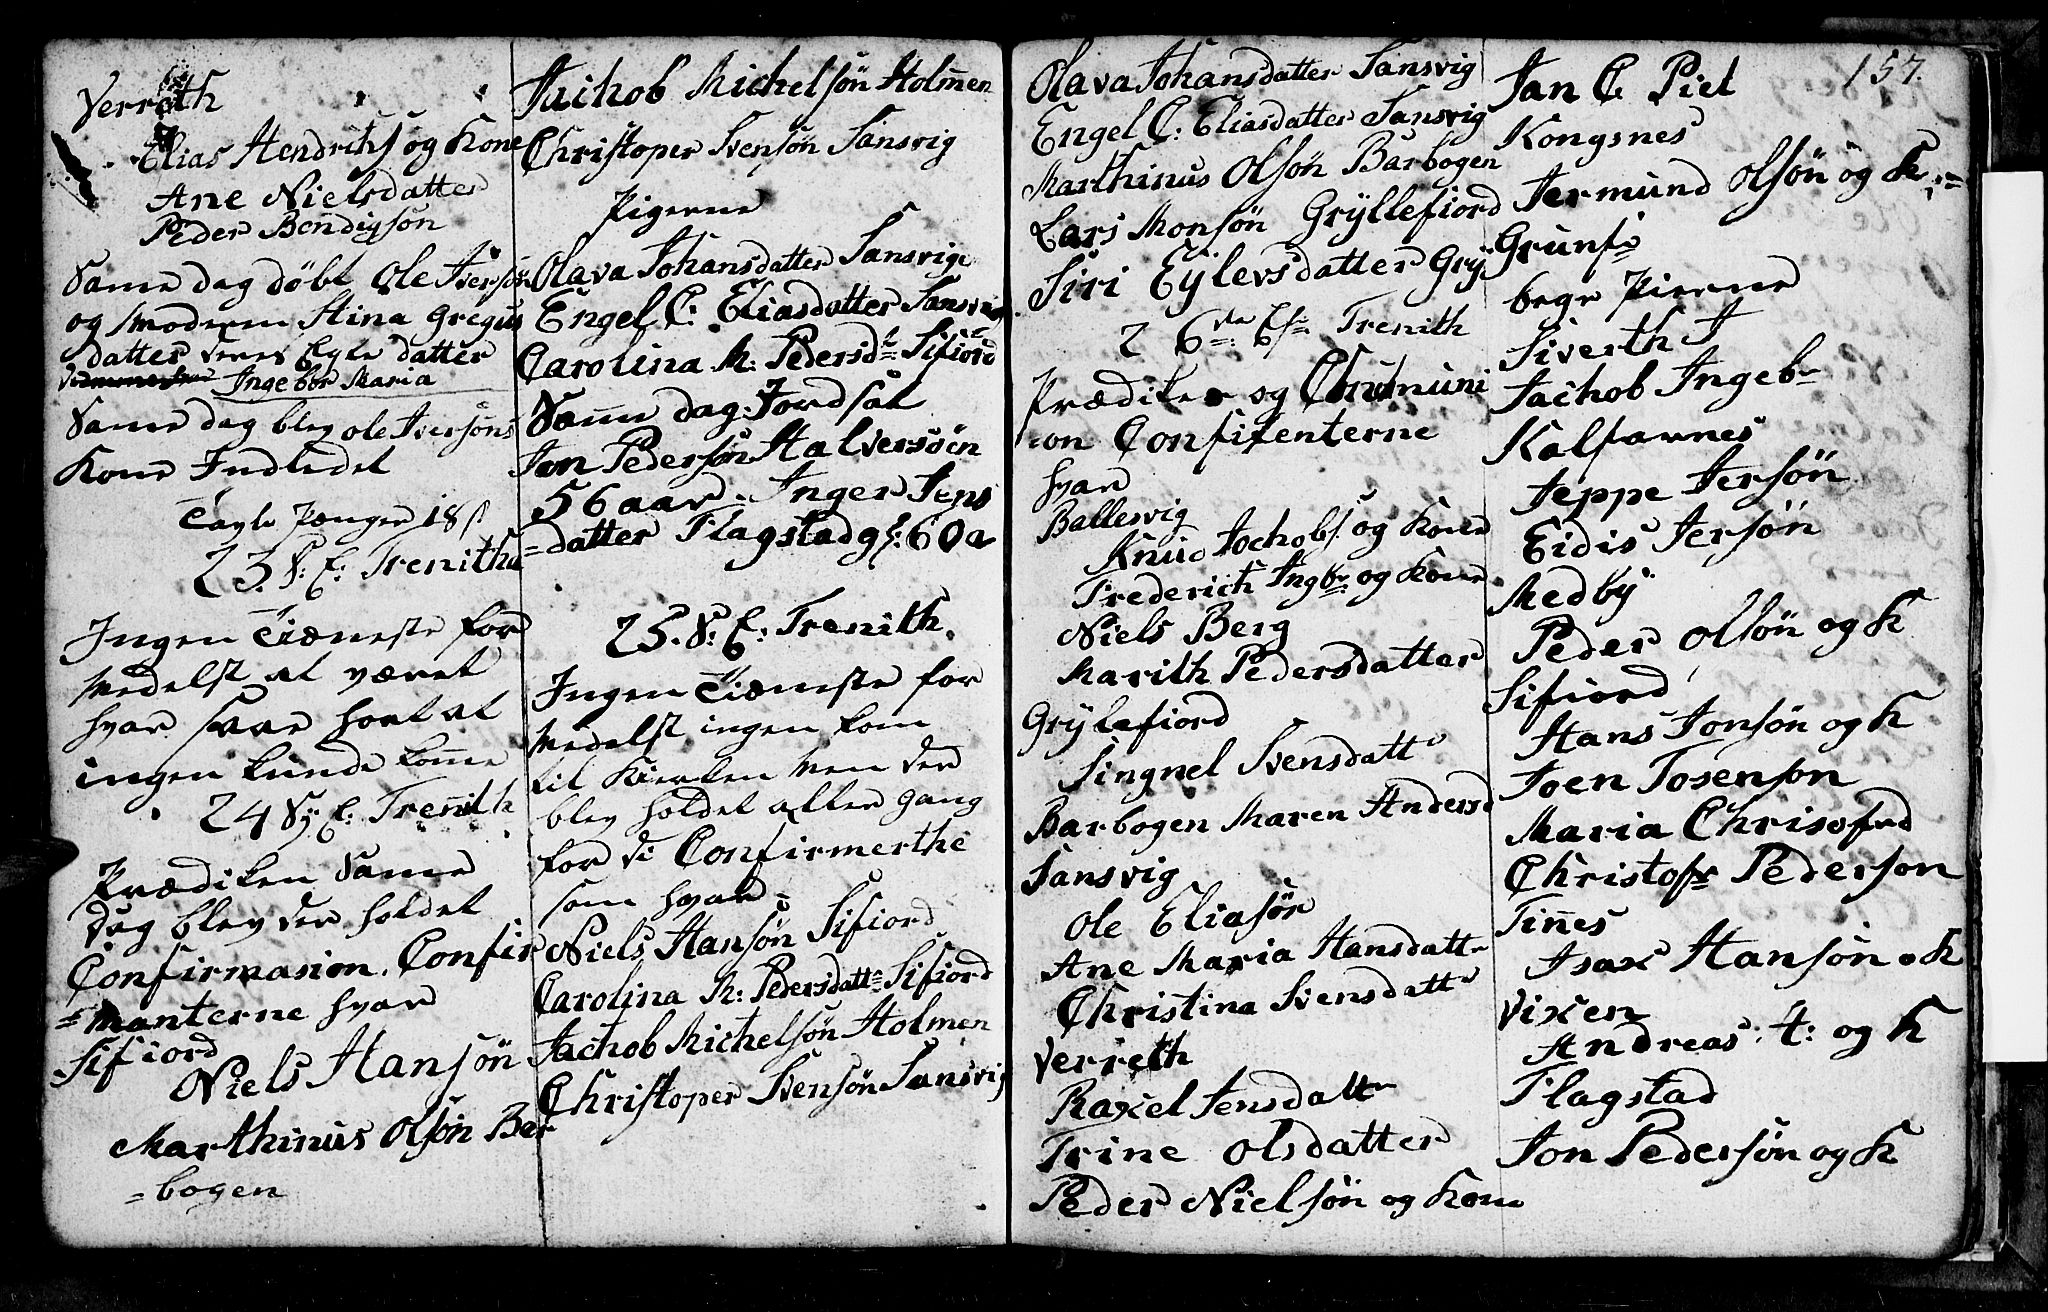 Verreth
Elias Hendrichs og Kone
Ane Nielsdatter
Peder Bendigsøn
Same dag døbt Ole Iversøn
og Moderen Stina Gregus
datter deres Egte datter
Ingebor Maria
Same dag blev ole Iversøns
Kone Indledet
Tavle Penger 18 s
23. S: E: Trenitha
Ingen Tieneste for
Medelst at været
hvar saa hart at
ingen kunde kome
24 S: E: Trenith
Prædiken Same
dag blev der holdet
Confirmasion. Confir
=manterne hvar
Sifiord
Niels Hansøn
Marthinus Olsøn Bar
=bogen
Jachob Michelsøn Holmen
Christoper Svensøn Sansvig
Pigerne
Olava Johansdatter Sansvig
Engel C: Eliasdatter Sansvig
Carolina M: Pedersd Sifiord
Same dag Jordsat
Jon Pedersøn Halversøen
56 aar. Inger Jens
=datter Flagstad g: 60 a
25. S: E: Trenith.
Ingen Tieneste for
Medelst ingen kom
til Kierken Men der
blev holdet alter gang
for di Confirmerthe
som hvar
Niels Hansøn Sifiord
Carolina M: Pedersdatt Sifiord
Jachob Michelsøn Holmen
Christoper Svensøn Sansvig
157.
Olava Johansdatter Sansvig
Engel C: Eliasdatter Sansvig
Marthinus Olsøn Barbogen
Lars Monsøn Gryllefiord
Siri Eylevsdatter Gry
26 Trenith
Prædiken og Chumuni
=on Confitenterne
hvar
Ballesvig
Knud Jochobs. og Kone
Frederich Ingbr og Kone
Niels Berg
Marith Pedersdatter
Grylefiord
Singnel Svensdatt
Barbogen Maren Andersd
Sansvig
Ole Eliasøn
Ane Maria Hansdatt
Christina Svensdatt
Verreth
Raxel Jensdatt
Trine Olsdatter
Peder Nielsøn og Kone
Jan C Piel
Kongsnes
Jermund Olsøn og K
Grunf
begge Pierne
Siverth J
Jachob Ingebr
Kalfavnes
Jeppe Jersøn
Eidis Jersøn
Medby
Peder Olsøn og K
Sifiord
Hans Jonsøn og K
Joen Tosenson
Maria Chrisofrd
Christofr Pederson
Tines
Isax Hansøn o K
Vixen
Andreas: A: og K
Flagstad
Jon Pedersøn og K